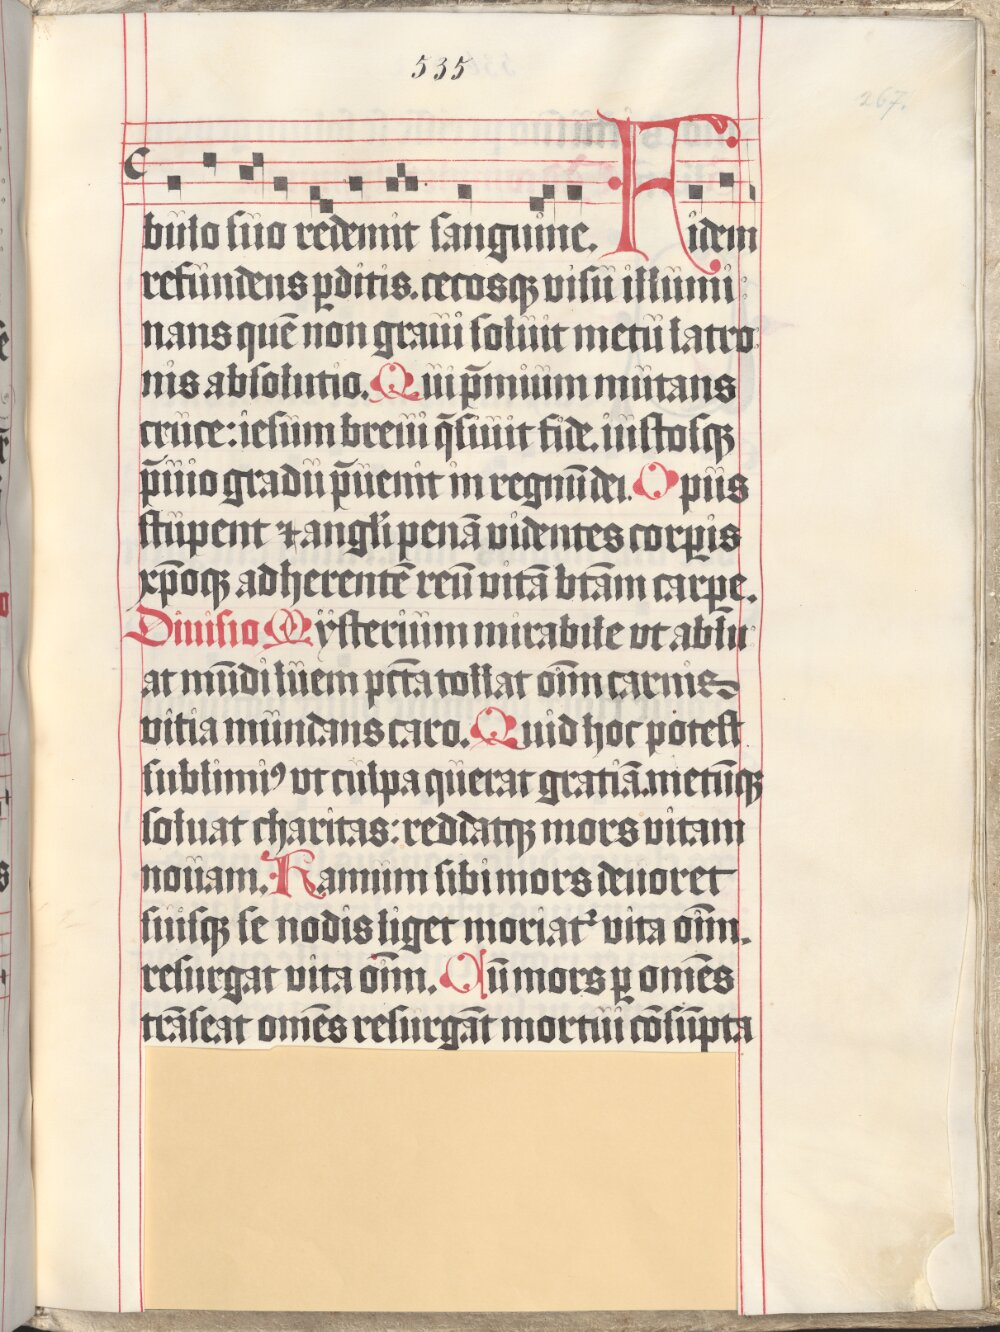 535
267.
bulo suo redemit sanguine. Ridem
refundens ꝑditis. cecosqꝫ visu illumi
nans quē non graui soluit metu latro
nis absolutio. Qui p̄mium mutans
cruce: iesum breui q̄siuit fide. iustosqꝫ
p̄uio gradu p̄uenit in regnū dei. Opus
stupent ⁊ angli penā videntes corpis
xp̄oqꝫ adherentē reū vitā btām carpe.
Diuisio Mysterium mirabile vt ablu
at mūdi luem pctā tollat oīm carnis
vitia mundans caro. Quid hoc potest
sublimiꝰ vt culpa querat gratiā. metūqꝫ
soluat charitas: reddatqꝫ mors vitam
nouam. Hamum sibi mors deuoret
suisqꝫ se nodis liget moriat᷑ vita oīm.
resurgat vita oīm. Cū mors ꝑ omēs
trāseat omēs resurgāt mortui cōsūpta